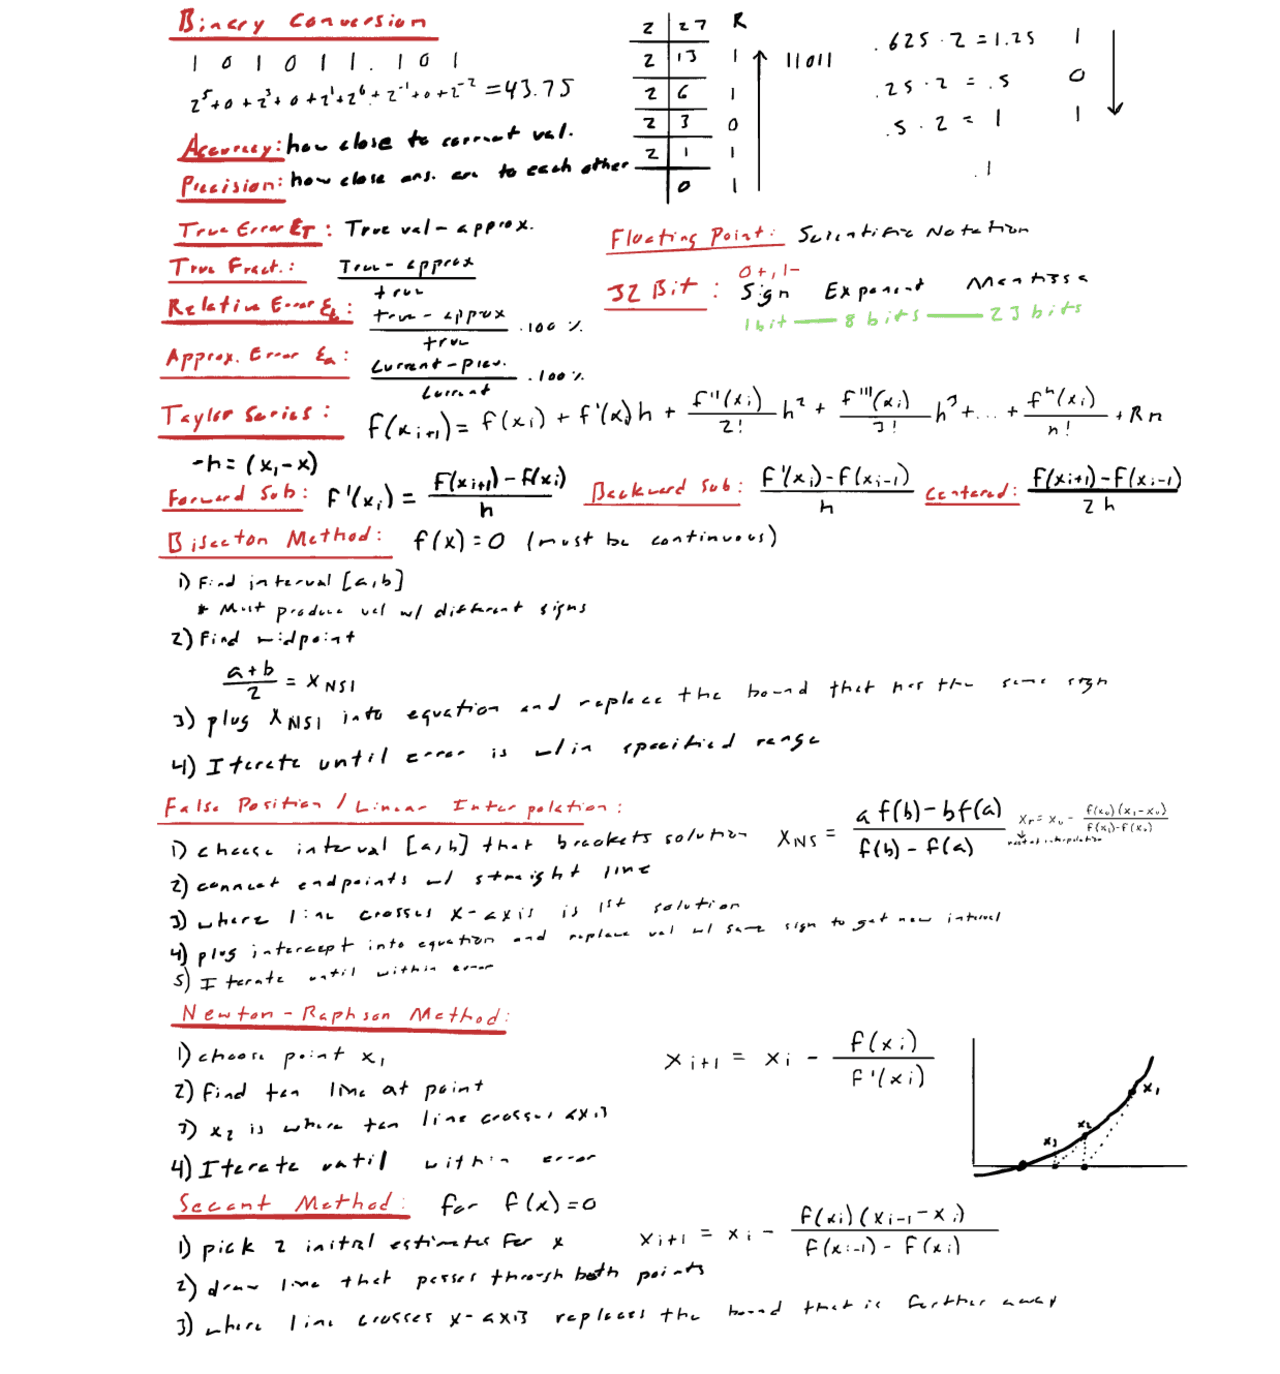 Binary Conversion
1 0 1 0 1 1 . 1 0 1
2^5+0+2^3+0+2^1+2^0+2^-1+0+2^-2 = 43.75
2 | 27 R
2 | 13 1
2 | 6 1
2 | 3 0
2 | 1 1
0 1
11011
.625 · 2 = 1.25 1
.25 · 2 = .5 0
.5 · 2 = 1 1
.1
Accuracy: how close to correct val.
Precision: how close ans. are to each other
True Error ET: True val - approx.
True Fract.: True - approx / true
Relative Error Et: true - approx / true · 100 %
Approx. Error Ea: Current - prev. / Current · 100 %
Floating Point: Scientific Notation
32 Bit: 0+, 1- Sign Exponent Mantissa
1 bit — 8 bits — 23 bits
Taylor Series: f(xi+1) = f(xi) + f'(x)h + f''(xi)/2! h^2 + f'''(xi)/3! h^3 + ... + f^n(xi)/n! + Rn
-h = (x1-x)
Forward Sub: f'(xi) = F(xi+1) - f(xi) / h
Backward Sub: f'(xi) - f(xi-1) / h
Centered: f(xi+1) - f(xi-1) / 2h
Bisecton Method: f(x) = 0 (must be continuous)
1) Find interval [a,b]
* Must produce val w/ different signs
2) Find midpoint
a+b / 2 = xNS1
3) plug xNS1 into equation and replace the bound that has the same sign
4) Iterate until error is w/in specified range
False Position / Linear Interpolation:
1) choose interval [a,b] that brackets solution
xNS = a f(b) - b f(a) / f(b) - f(a)
xr = xu - f(xu)(x1-xu) / f(x1)-f(xu)
2) connect endpoints w/ straight line
3) where line crosses x-axis is 1st solution
4) plug intercept into equation and replace val w/ same sign to get new interval
5) Iterate until within error
Newton-Raphson Method:
1) choose point x1
xi+1 = xi - f(xi) / f'(xi)
2) find tan line at point
3) x2 is where tan line crosses axis
4) Iterate until within error
x3 x2 x1
Secant Method: for f(x) = 0
1) pick 2 initial estimates for x
xi+1 = xi - f(xi)(xi-1 - xi) / f(xi-1) - f(xi)
2) draw line that passes through both points
3) where line crosses x-axis replaces the bound that is further away